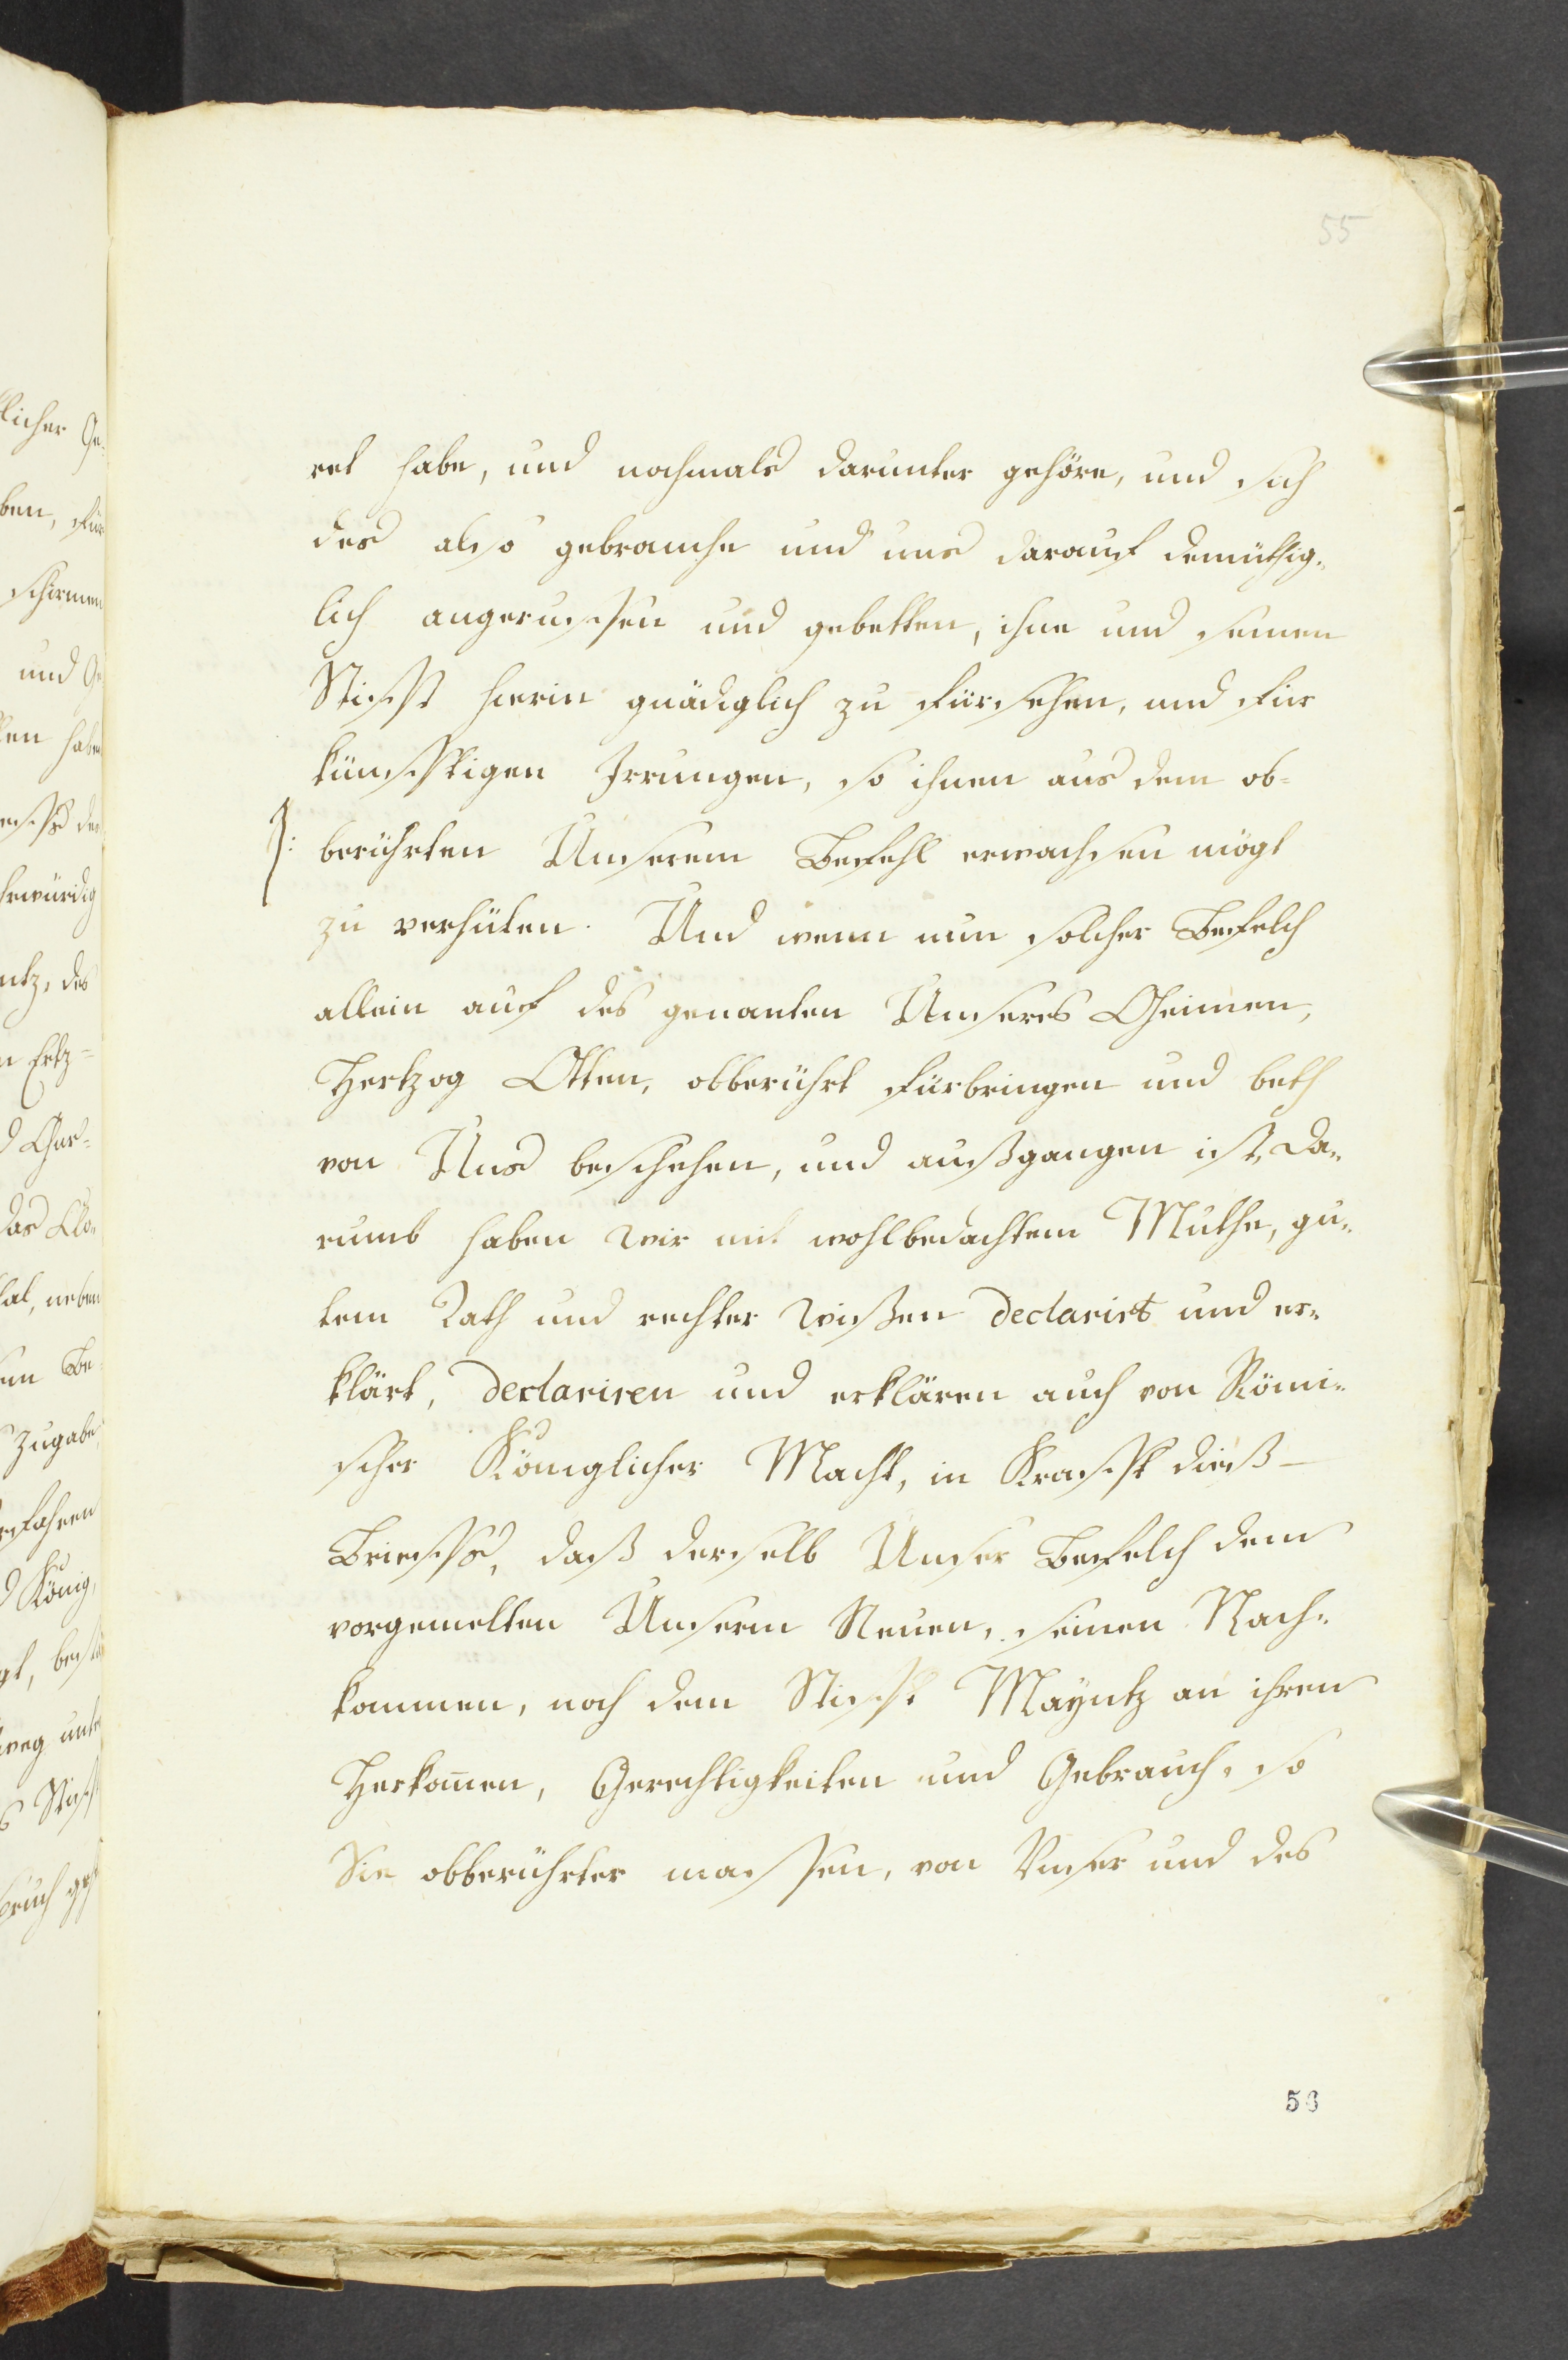 55
ret habe, und nochmals darunter gehöre, und sich
des also gebrauche und uns darauf demüthig-
lich angeruffen und gebetten, ihne und seinen
Stifft hierin gnädiglich zu fürsehen, und für
künfftigen Irrungen, so ihnen aus dem ob-
berührten Unserem Befehl erwachsen mögt
zu verhüten. Und wenn nun solcher Befelch
allein auf des genanten Unseres Oheimen,
Hertzog Otten, obberührt fürbringen und beth
von Uns beschehen, und außgangen ist, Da-
rumb haben Wir mit wohlbedachtem Muthe, gu-
tem Rath und rechter Wißen declarirt und er-
klärt, declariren und erklären auch von Römi-
scher Königlicher Macht, in Krafft dieß-
Brieffs, daß derselb Unser Befelch dem
vorgemelten Unserm Neuen, seinen Nach-
kommen, noch dem Stifft Mayntz an ihren
Herkommen, Gerechtigkeiten und Gebrauch, so
Sie obberührter massen, von Unser und des
56
licher Ge-
ben, für
schirmen
und Ge-
habe
ehrwürdig
ntz, des
Ertz-
das Clo-
tal, neben
Be-
Zugabe
König,
weg unte
Stifft